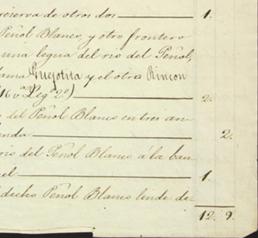 cierva de otros dos 1.
Peñol Blanco, y otro frontero
una legua del rio del Peñol,
lama y el otro Rincon
2.
del Peñol Blanco en tres an
enda 2.
rio del Peñol Blanco á la ban
el 1.
dicho Peñol Blanco linde de
12. 9.